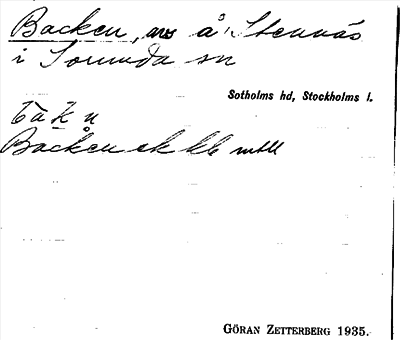 Backen, å Stennäs
i Sorunda sn
Sotholms hd, Stockholms l.
Backen ek kl
GÖRAN ZETTERBERG 1935.